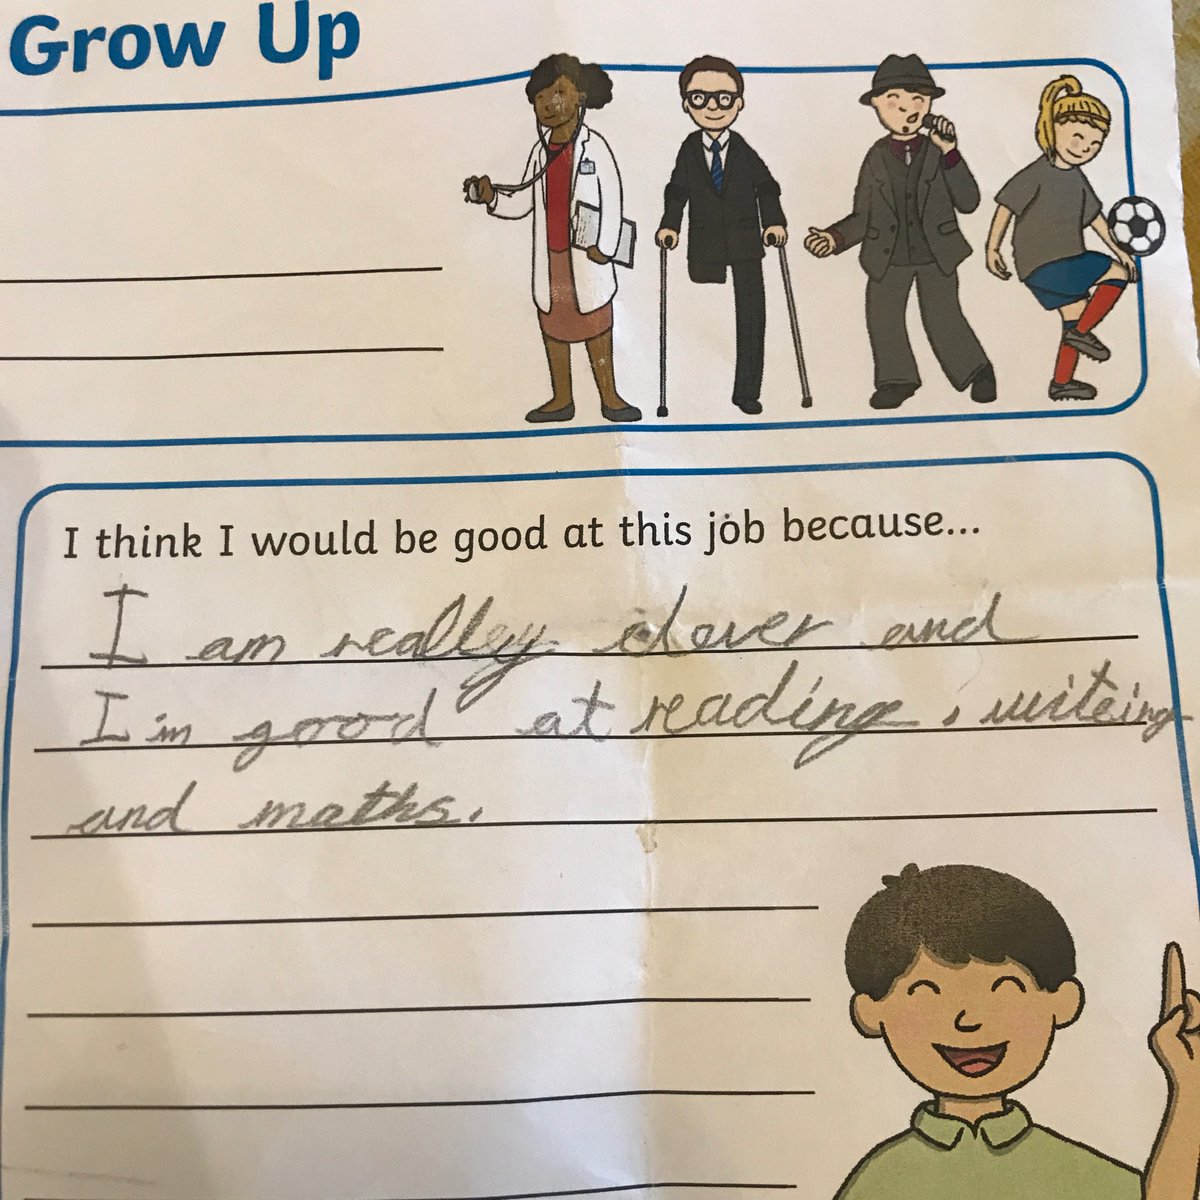 Grow Up
I think I would be good at this job because...
I am really clever and
I'm good at reading, writeing
and maths.